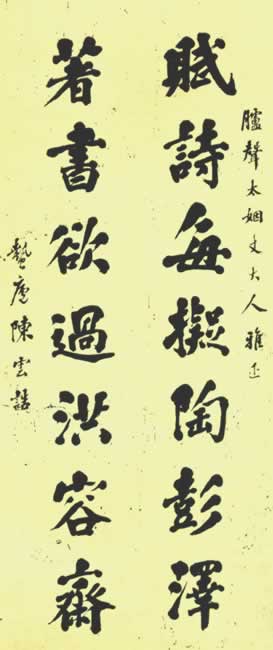 臚聲太姻丈大人雅正
賦詩每擬陶彭澤
著書欲過洪容齋
蟄廬陳雲誥